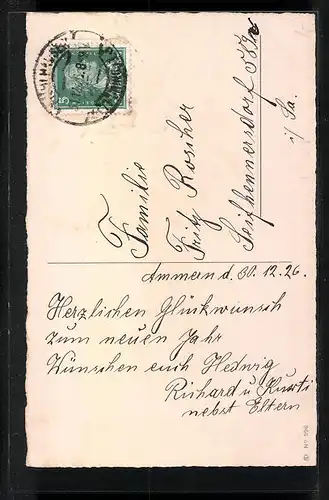 Familie
Fritz Rösicher
Seifhennersdorf 583
i/ Sa.
Ammern d. 30.12.26.
Herzlichen Glückwunsch
zum neuen Jahr
Wünschen euch Hedwig
Richard u Kurti
nebst Eltern
5
No 996